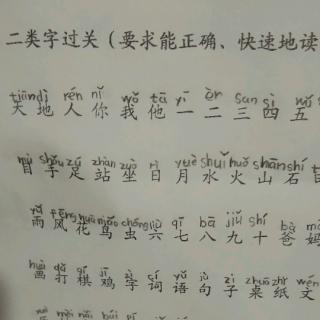 二类字过关（要求能正确、快速地读
tiāndì rén nǐ wǒ tā yī èr san sì wǔ
天 地 人 你 我 他 一 二 三 四 五
mù shǒu zú zhàn zuò rì yuè shuǐ huǒ shān shí
目 手 足 站 坐 日 月 水 火 山 石
yǔ fēng huā niǎo chóng liù qī bā jiǔ shí bà mā
雨 风 花 鸟 虫 六 七 八 九 十 爸 妈
huà dǎ qí jī zì cí yǔ jù zi zhuō zhǐ wén
画 打 棋 鸡 字 词 语 句 子 桌 纸 文